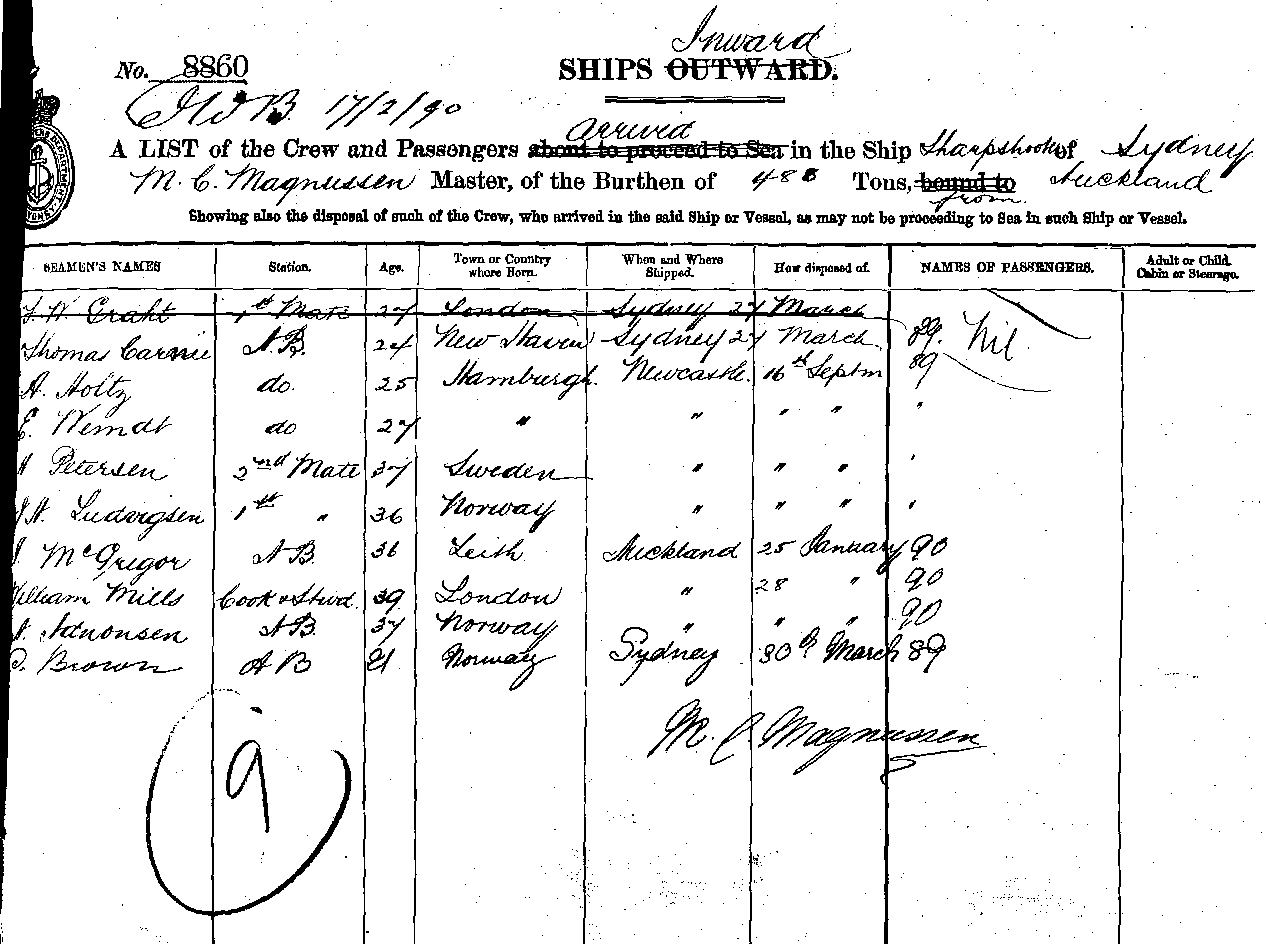 Inward
No. 8860 SHIPS OUTWARD.
17/2/90
arrived
A LIST of the Crew and Passengers about to proceed to Sea in the Ship Sharpshooter of Sydney
M. C. Magnussen Master, of the Burthen of 488 Tons, bound to Auckland
from
Showing also the disposal of such of the Crew, who arrived in the said Ship or Vessel, as may not be proceeding to Sea in such Ship or Vessel.
SEAMEN'S NAMES Station. Age. Town or Country where Born. When and Where Shipped. How disposed of. NAMES OF PASSENGERS. Adult or Child. Cabin or Steerage.
1st Mate 27 London Sydney 27 March 89. Nil
Thomas Carnie A.B. 24 New Haven Sydney 27 March 89
A. Holtz do 25 Hamburgh. Newcastle. 16th Septm
E. Wemdt do 27 " " " " "
Petersen 2nd Mate 37 Sweden " " " "
H. Ludvigsen 1st " 36 Norway " " " "
McGregor A.B. 36 Leith Auckland 25 January 90
William Mills Cook & Stwd. 39 London " 28 " 90
A.B. 37 Norway " " " 90
Brown A B 21 Norway Sydney 30th March 89
M. C. Magnussen
9